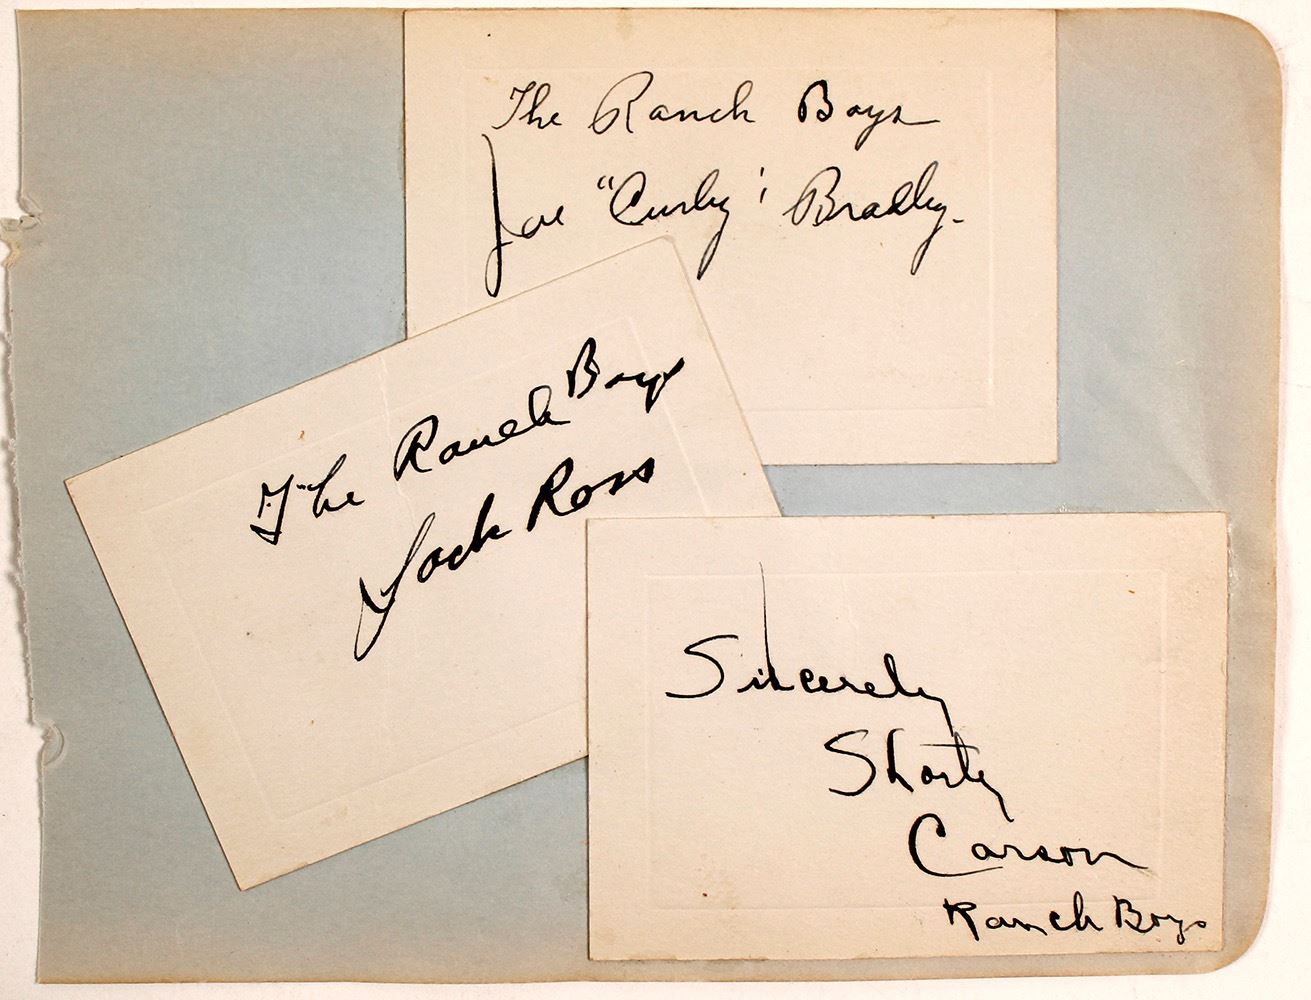 The Ranch Boys
Joe "Curley" Bradley.
The Ranch Boys
Jack Ross
Sincerely
Shorty
Carson
Ranch Boys